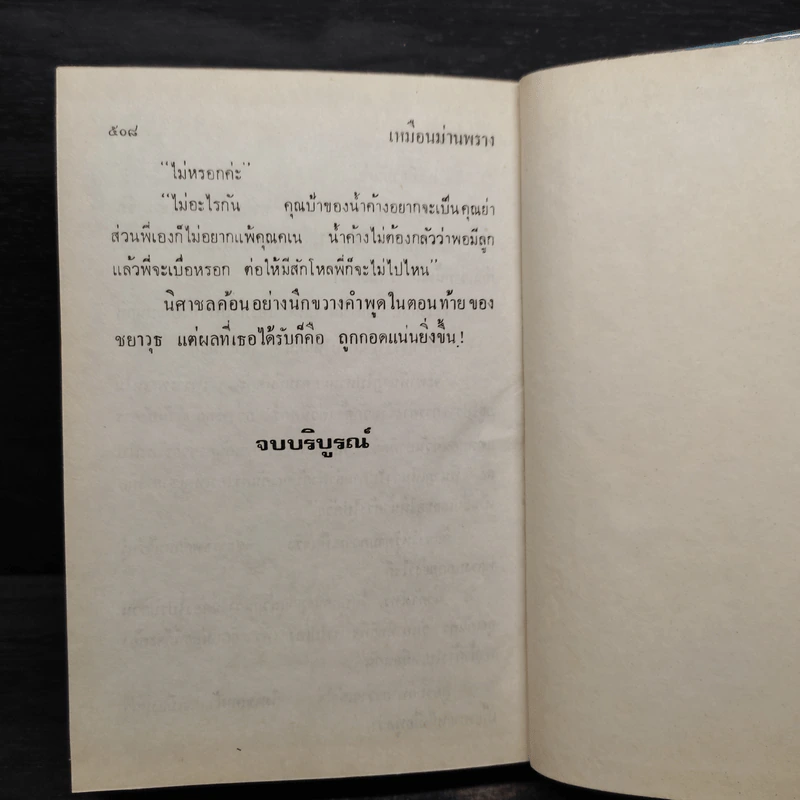 ๕๐๘
เหมือนม่านพราง
“ไม่หรอกค่ะ”
“ไม่อะไรกัน คุณป้าของน้ำค้างอยากจะเป็นคุณย่า
ส่วนพี่เองก็ไม่อยากแพ้คุณคเน น้ำค้างไม่ต้องกลัวว่าพอมีลูก
แล้วพี่จะเบื่อหรอก ต่อให้มีสักโหลพี่ก็จะไม่ไปไหน”
นิศาชลค้อนอย่างนึกขวางคำพูดในตอนท้ายของ
ชยาวุธ แต่ผลที่เธอได้รับก็คือ ถูกกอดแน่นยิ่งขึ้น!
จบบริบูรณ์